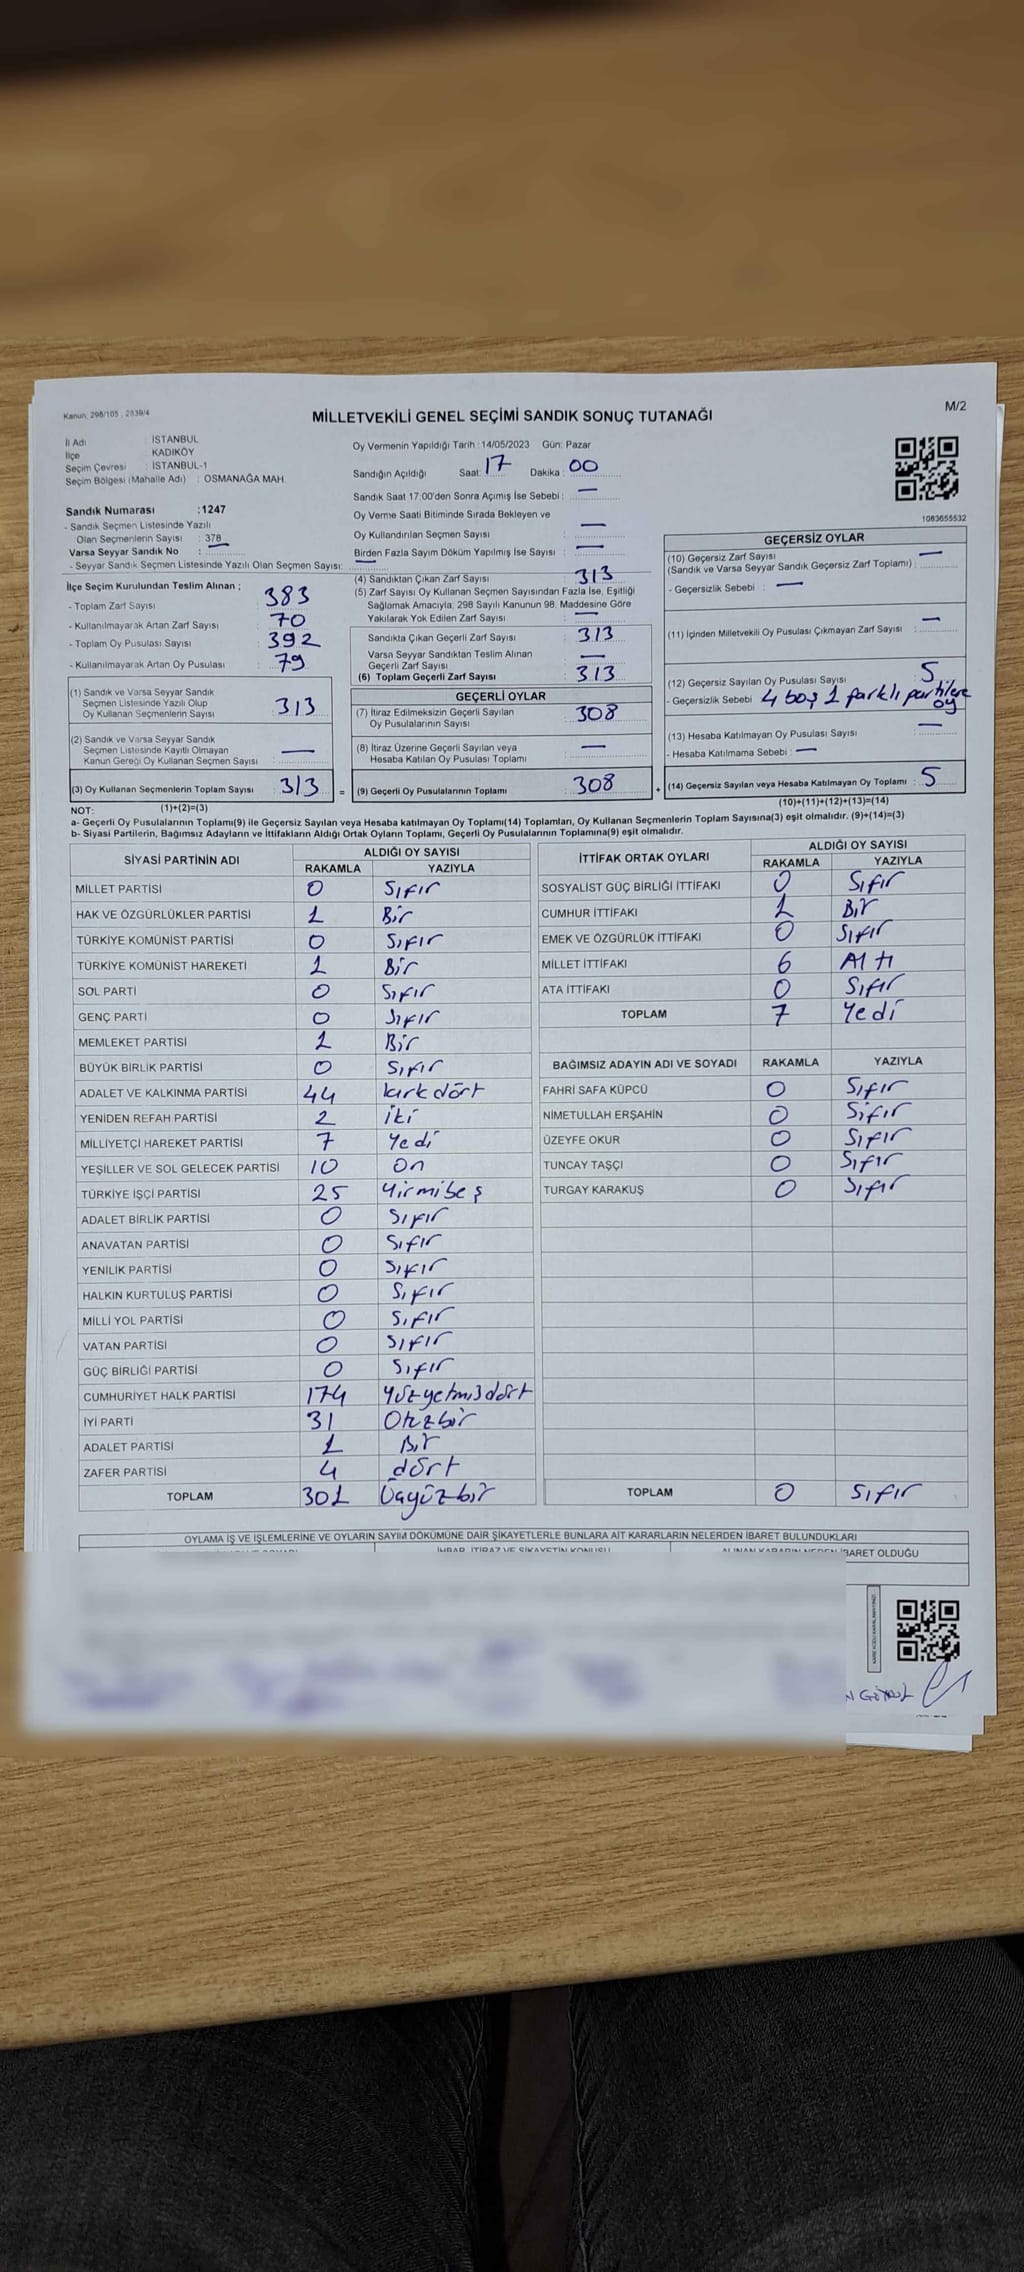 Kanun: 298/105 , 2839/4
M/2
MİLLETVEKİLİ GENEL SEÇİMİ SANDIK SONUÇ TUTANAĞI
İl Adı : İSTANBUL
İlçe : KADIKÖY
Seçim Çevresi : İSTANBUL-1
Seçim Bölgesi (Mahalle Adı) : OSMANAĞA MAH.
Sandık Numarası :1247
- Sandık Seçmen Listesinde Yazılı
Olan Seçmenlerin Sayısı : 378
Varsa Seyyar Sandık No : —
- Seyyar Sandık Seçmen Listesinde Yazılı Olan Seçmen Sayısı: —
Oy Vermenin Yapıldığı Tarih :14/05/2023 Gün: Pazar
Sandığın Açıldığı Saat: 17 Dakika : 00
Sandık Saat 17:00'den Sonra Açımış İse Sebebi : —
Oy Verme Saati Bitiminde Sırada Bekleyen ve
Oy Kullandırılan Seçmen Sayısı : —
Birden Fazla Sayım Döküm Yapılmış İse Sayısı : —
1083655532
İlçe Seçim Kurulundan Teslim Alınan ;
- Toplam Zarf Sayısı : 383
- Kullanılmayarak Artan Zarf Sayısı : 70
- Toplam Oy Pusulası Sayısı : 392
- Kullanılmayarak Artan Oy Pusulası : 79
(1) Sandık ve Varsa Seyyar Sandık
Seçmen Listesinde Yazılı Olup
Oy Kullanan Seçmenlerin Sayısı : 313
(2) Sandık ve Varsa Seyyar Sandık
Seçmen Listesinde Kayıtlı Olmayan
Kanun Gereği Oy Kullanan Seçmen Sayısı : —
(3) Oy Kullanan Seçmenlerin Toplam Sayısı : 313 =
(1)+(2)=(3)
(4) Sandıktan Çıkan Zarf Sayısı : 313
(5) Zarf Sayısı Oy Kullanan Seçmen Sayısından Fazla İse, Eşitliği
Sağlamak Amacıyla; 298 Sayılı Kanunun 98. Maddesine Göre
Yakılarak Yok Edilen Zarf Sayısı : —
Sandıkta Çıkan Geçerli Zarf Sayısı : 313
Varsa Seyyar Sandıktan Teslim Alınan
Geçerli Zarf Sayısı : —
(6) Toplam Geçerli Zarf Sayısı : 313
GEÇERLİ OYLAR
(7) İtiraz Edilmeksizin Geçerli Sayılan
Oy Pusulalarının Sayısı : 308
(8) İtiraz Üzerine Geçerli Sayılan veya
Hesaba Katılan Oy Pusulası Toplamı : —
(9) Geçerli Oy Pusulalarının Toplamı : 308 +
GEÇERSİZ OYLAR
(10) Geçersiz Zarf Sayısı
(Sandık ve Varsa Seyyar Sandık Geçersiz Zarf Toplamı) : —
- Geçersizlik Sebebi : —
(11) İçinden Milletvekili Oy Pusulası Çıkmayan Zarf Sayısı : —
(12) Geçersiz Sayılan Oy Pusulası Sayısı : 5
- Geçersizlik Sebebi 4 boş 1 farklı partilere
oy
(13) Hesaba Katılmayan Oy Pusulası Sayısı : —
- Hesaba Katılmama Sebebi : —
(14) Geçersiz Sayılan veya Hesaba Katılmayan Oy Toplamı : 5
(10)+(11)+(12)+(13)=(14)
NOT:
a- Geçerli Oy Pusulalarının Toplamı(9) ile Geçersiz Sayılan veya Hesaba katılmayan Oy Toplamı(14) Toplamları, Oy Kullanan Seçmenlerin Toplam Sayısına(3) eşit olmalıdır. (9)+(14)=(3)
b- Siyasi Partilerin, Bağımsız Adayların ve İttifakların Aldığı Ortak Oyların Toplamı, Geçerli Oy Pusulalarının Toplamına(9) eşit olmalıdır.
SİYASİ PARTİNİN ADI ALDIĞI OY SAYISI
RAKAMLA YAZIYLA
MİLLET PARTİSİ 0 Sıfır
HAK VE ÖZGÜRLÜKLER PARTİSİ 1 Bir
TÜRKİYE KOMÜNİST PARTİSİ 0 Sıfır
TÜRKİYE KOMÜNİST HAREKETİ 1 Bir
SOL PARTİ 0 Sıfır
GENÇ PARTİ 0 Sıfır
MEMLEKET PARTİSİ 1 Bir
BÜYÜK BİRLİK PARTİSİ 0 Sıfır
ADALET VE KALKINMA PARTİSİ 44 kırkdört
YENİDEN REFAH PARTİSİ 2 iki
MİLLİYETÇİ HAREKET PARTİSİ 7 Yedi
YEŞİLLER VE SOL GELECEK PARTİSİ 10 On
TÜRKİYE İŞÇİ PARTİSİ 25 Yirmibeş
ADALET BİRLİK PARTİSİ 0 Sıfır
ANAVATAN PARTİSİ 0 Sıfır
YENİLİK PARTİSİ 0 Sıfır
HALKIN KURTULUŞ PARTİSİ 0 Sıfır
MİLLİ YOL PARTİSİ 0 Sıfır
VATAN PARTİSİ 0 Sıfır
GÜÇ BİRLİĞİ PARTİSİ 0 Sıfır
CUMHURİYET HALK PARTİSİ 174 Yüzyetmişdört
İYİ PARTİ 31 Otuzbir
ADALET PARTİSİ 1 Bir
ZAFER PARTİSİ 4 dört
TOPLAM 301 Üçyüzbir
İTTİFAK ORTAK OYLARI ALDIĞI OY SAYISI
RAKAMLA YAZIYLA
SOSYALİST GÜÇ BİRLİĞİ İTTİFAKI 0 Sıfır
CUMHUR İTTİFAKI 1 Bir
EMEK VE ÖZGÜRLÜK İTTİFAKI 0 Sıfır
MİLLET İTTİFAKI 6 Altı
ATA İTTİFAKI 0 Sıfır
TOPLAM 7 Yedi
BAĞIMSIZ ADAYIN ADI VE SOYADI RAKAMLA YAZIYLA
FAHRİ SAFA KÜPCÜ 0 Sıfır
NİMETULLAH ERŞAHİN 0 Sıfır
ÜZEYFE OKUR 0 Sıfır
TUNCAY TAŞÇI 0 Sıfır
TURGAY KARAKUŞ 0 Sıfır
TOPLAM 0 Sıfır
OYLAMA İŞ VE İŞLEMLERİNE VE OYLARIN SAYIM DÖKÜMÜNE DAİR ŞİKAYETLERLE BUNLARA AİT KARARLARIN NELERDEN İBARET BULUNDUKLARI
İHBAR, İTİRAZ VE ŞİKAYETİN KONUSU
ALINAN KARARIN NEDEN İBARET OLDUĞU